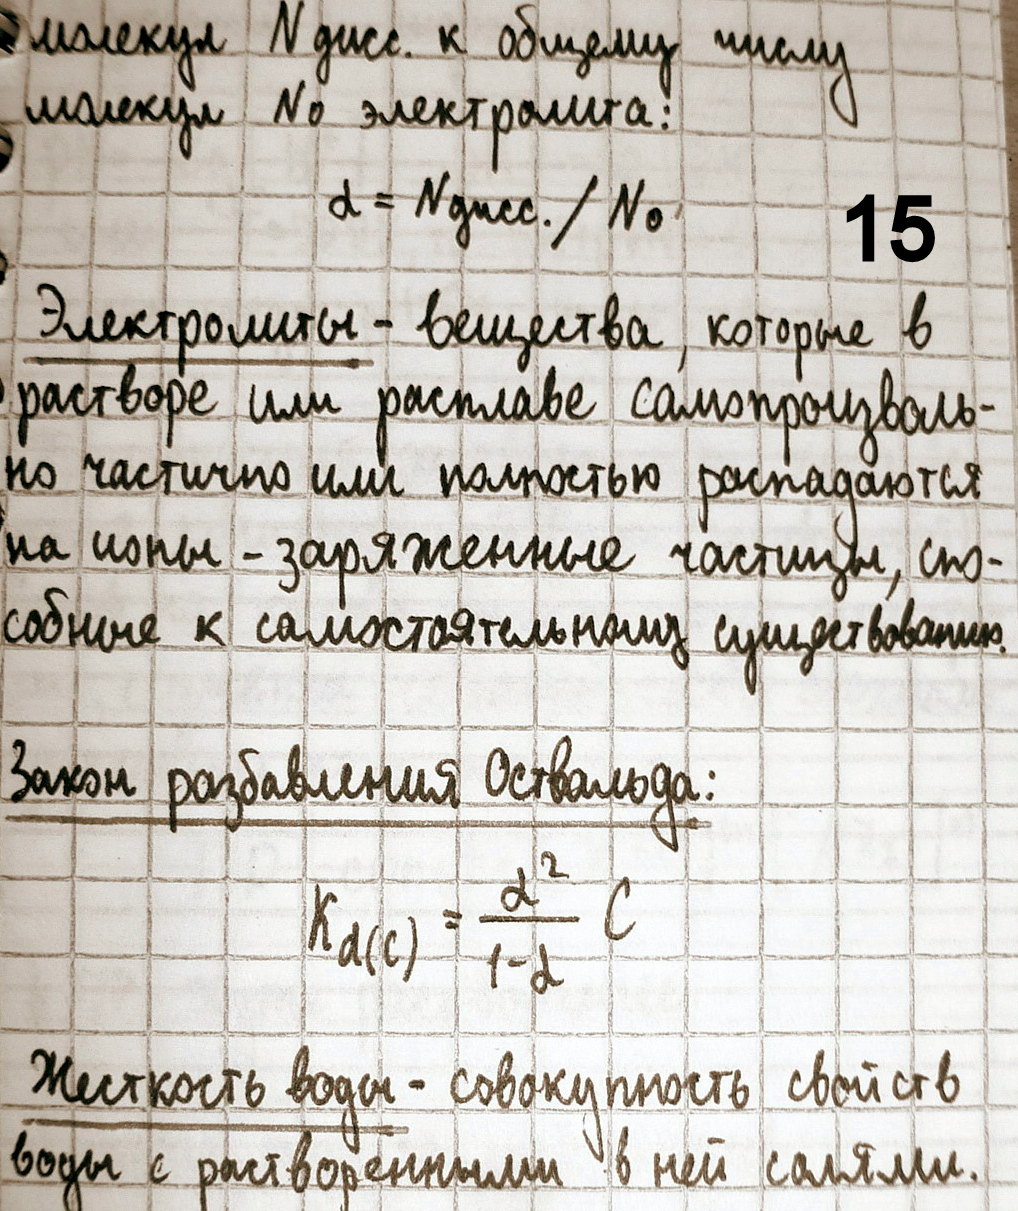 молекул Nдисс. к общему числу
молекул N₀ электролита:
α = Nдисс. / N₀
15
Электролиты - вещества, которые в
растворе или расплаве самопроизволь-
но частично или полностью распадаются
на ионы - заряженные частицы, спо-
собные к самостоятельному существованию.
Закон разбавления Оствальда:
K d(c) = α² / (1-α) C
Жесткость воды - совокупность свойств
воды с растворенными в ней солями.